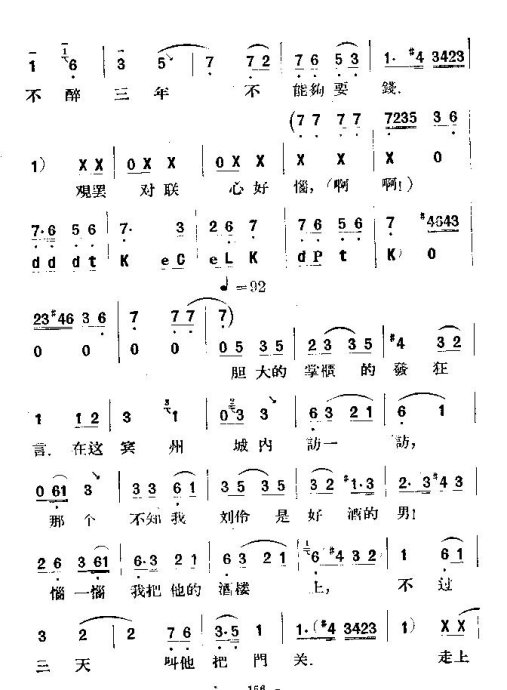 1 6 | 3 5 | 7 7 2 | 7 6 5 3 | 1· #4 3423
不醉三年 不 能夠要 錢.
(7 7 7 7 | 7235 3 6
1) X X | 0 X X | 0 X X | X X X X | X 0
观罢 对联 心好 惱,(啊 啊!)
7·6 5 6 | 7· 3 | 2 6 7 | 7 6 5 6 | 7 #4643
d d d t | K e C | e L K | d P t | K) 0
♩=92
23#46 3 6 | 7 7 7 | 7)
0 0 | 0 0 | 0 5 3 5 | 2 3 3 5 | #4 3 2
胆大的 掌櫃 的發狂
1 1 2 | 3 1 | 0 3 3 | 6 3 2 1 | 6 1
言.在这 宾州 城內 訪一 訪,
0 61 3 | 3 3 6 1 | 3 5 3 5 | 3 2 #1·3 | 2· 3 #4 3
那个 不知我 刘伶 是好 酒的男!
2 6 3 61 | 6·3 2 1 | 6 3 2 1 | 6 #4 3 2 | 1 6 1
惱一惱 我把他的酒楼 上, 不过
3 2 | 2 7 6 | 3·5 1 | 1·(#4 3423 | 1) X X
三天 叫他把門关. 走上
156